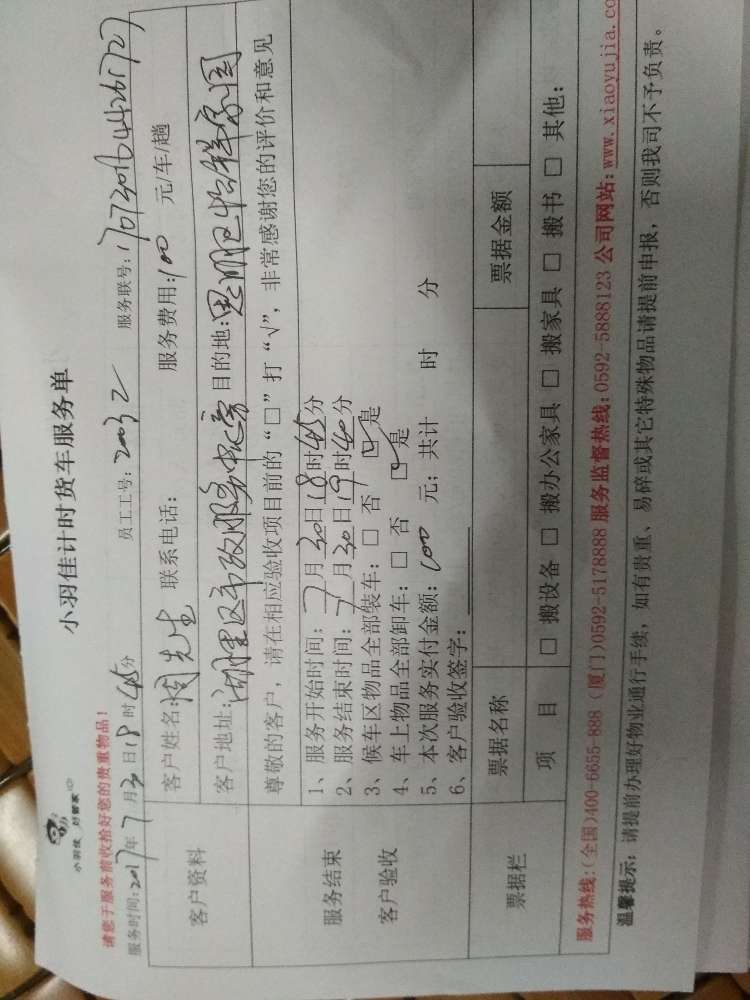 小羽佳计时货车服务单
小羽佳 好管家
请您于服务前收拾好您的贵重物品!
服务时间: 2017年 7 月 30日 18 时 45分 员工工号: 20032 服务联号: 17073016442651727
客户资料
客户姓名: 周先生 联系电话: 服务费用: 100 元/车/趟
客户地址: 湖里区市政服务中心旁 目的地: 思明区怡祥家园
服务结束
客户验收
尊敬的客户, 请在相应验收项目前的“□”打“√”, 非常感谢您的评价和意见
1、服务开始时间: 7月30日18时45分
2、服务结束时间: 7月30日19时40分
3、候车区物品全部装车: □ 否 ☑ 是
4、车上物品全部卸车: □ 否 ☑ 是
5、本次服务实付金额: 100 元; 共计 时 分
6、客户验收签字:
票据栏
票据名称 票据金额
项 目 □ 搬设备 □ 搬办公家具 □ 搬家具 □ 搬书 □ 其他:
服务热线:(全国)400-6655-888 (厦门)0592-5178888 服务监督热线:0592-5888123 公司网站:www.xiaoyujia.co
温馨提示: 请提前办理好物业通行手续, 如有贵重、易碎或其它特殊物品请提前申报, 否则我司不予负责。